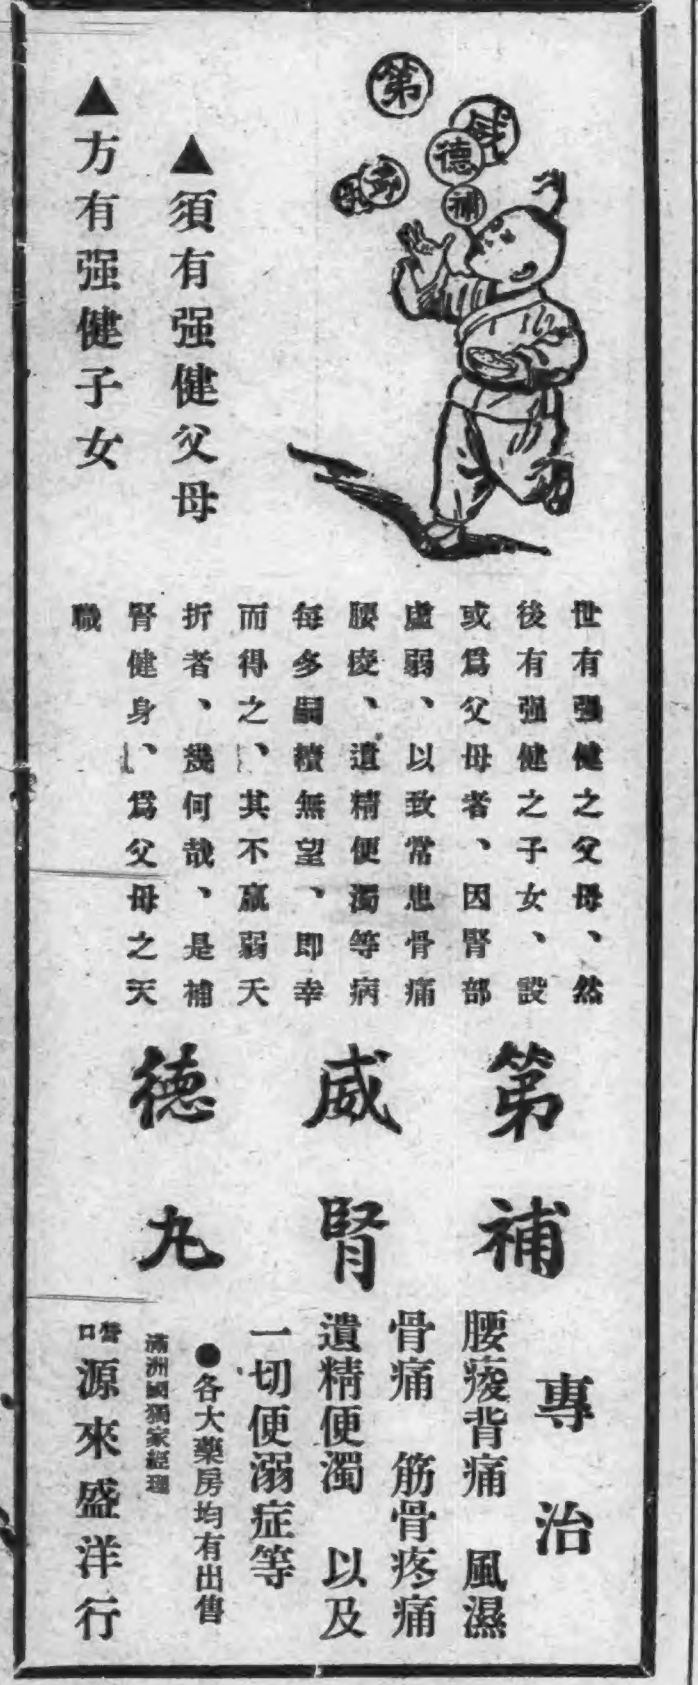 第
威
德
補
腎
丸
▲須有强健父母
▲方有强健子女
世有强健之父母、然
後有强健之子女、設
或爲父母者、因腎部
虛弱、以致常患骨痛
腰痠、遺精便濁等病
每多嗣續無望、即幸
而得之、其不羸弱夭
折者、幾何哉、是補
腎健身、爲父母之天
職
第威德
補腎丸
專治
腰痠背痛 風濕
骨痛 筋骨疼痛
遺精便濁 以及
一切便溺症等
●各大藥房均有出售
滿洲國獨家經理
營口 源來盛洋行